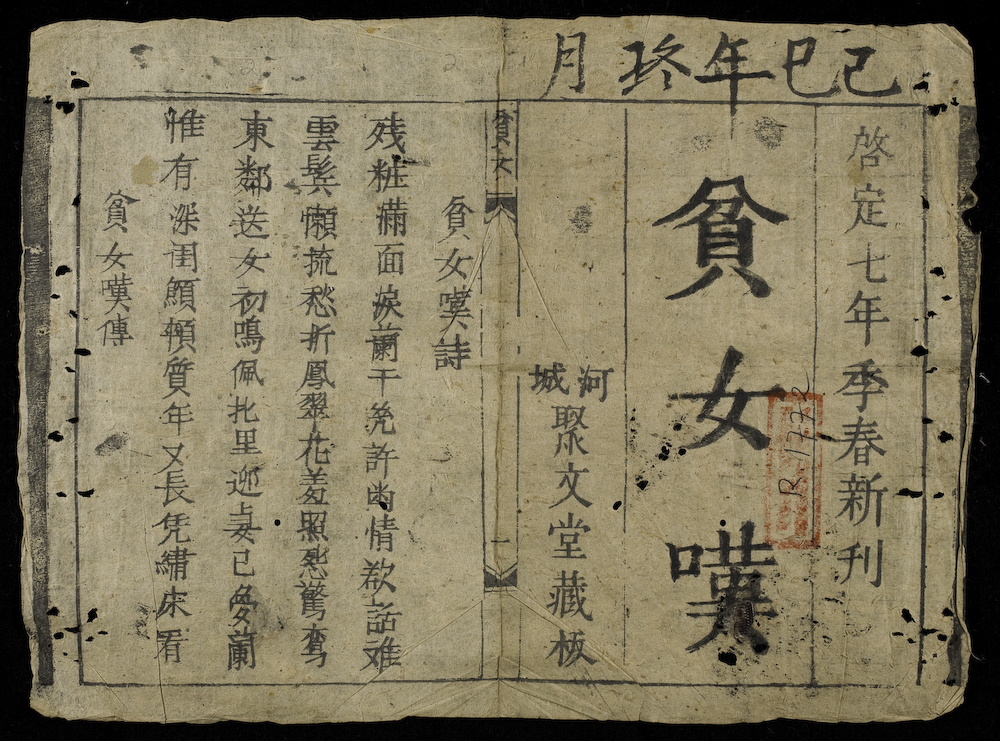 己巳年終月
啓定七年季春新刊
貧女嘆
R.1722
河城
聚文堂藏板
貧女
一
貧女嘆詩
残粧滿面淚蘭干羌許幽情欲話难
雲鬂懶梳愁折鳳翠花羞照恐驚鸞
東鄰送女初鳴佩北里迎妾已夢蘭
惟有深闺顦顇質年又長凭繡床看
貧女嘆傳